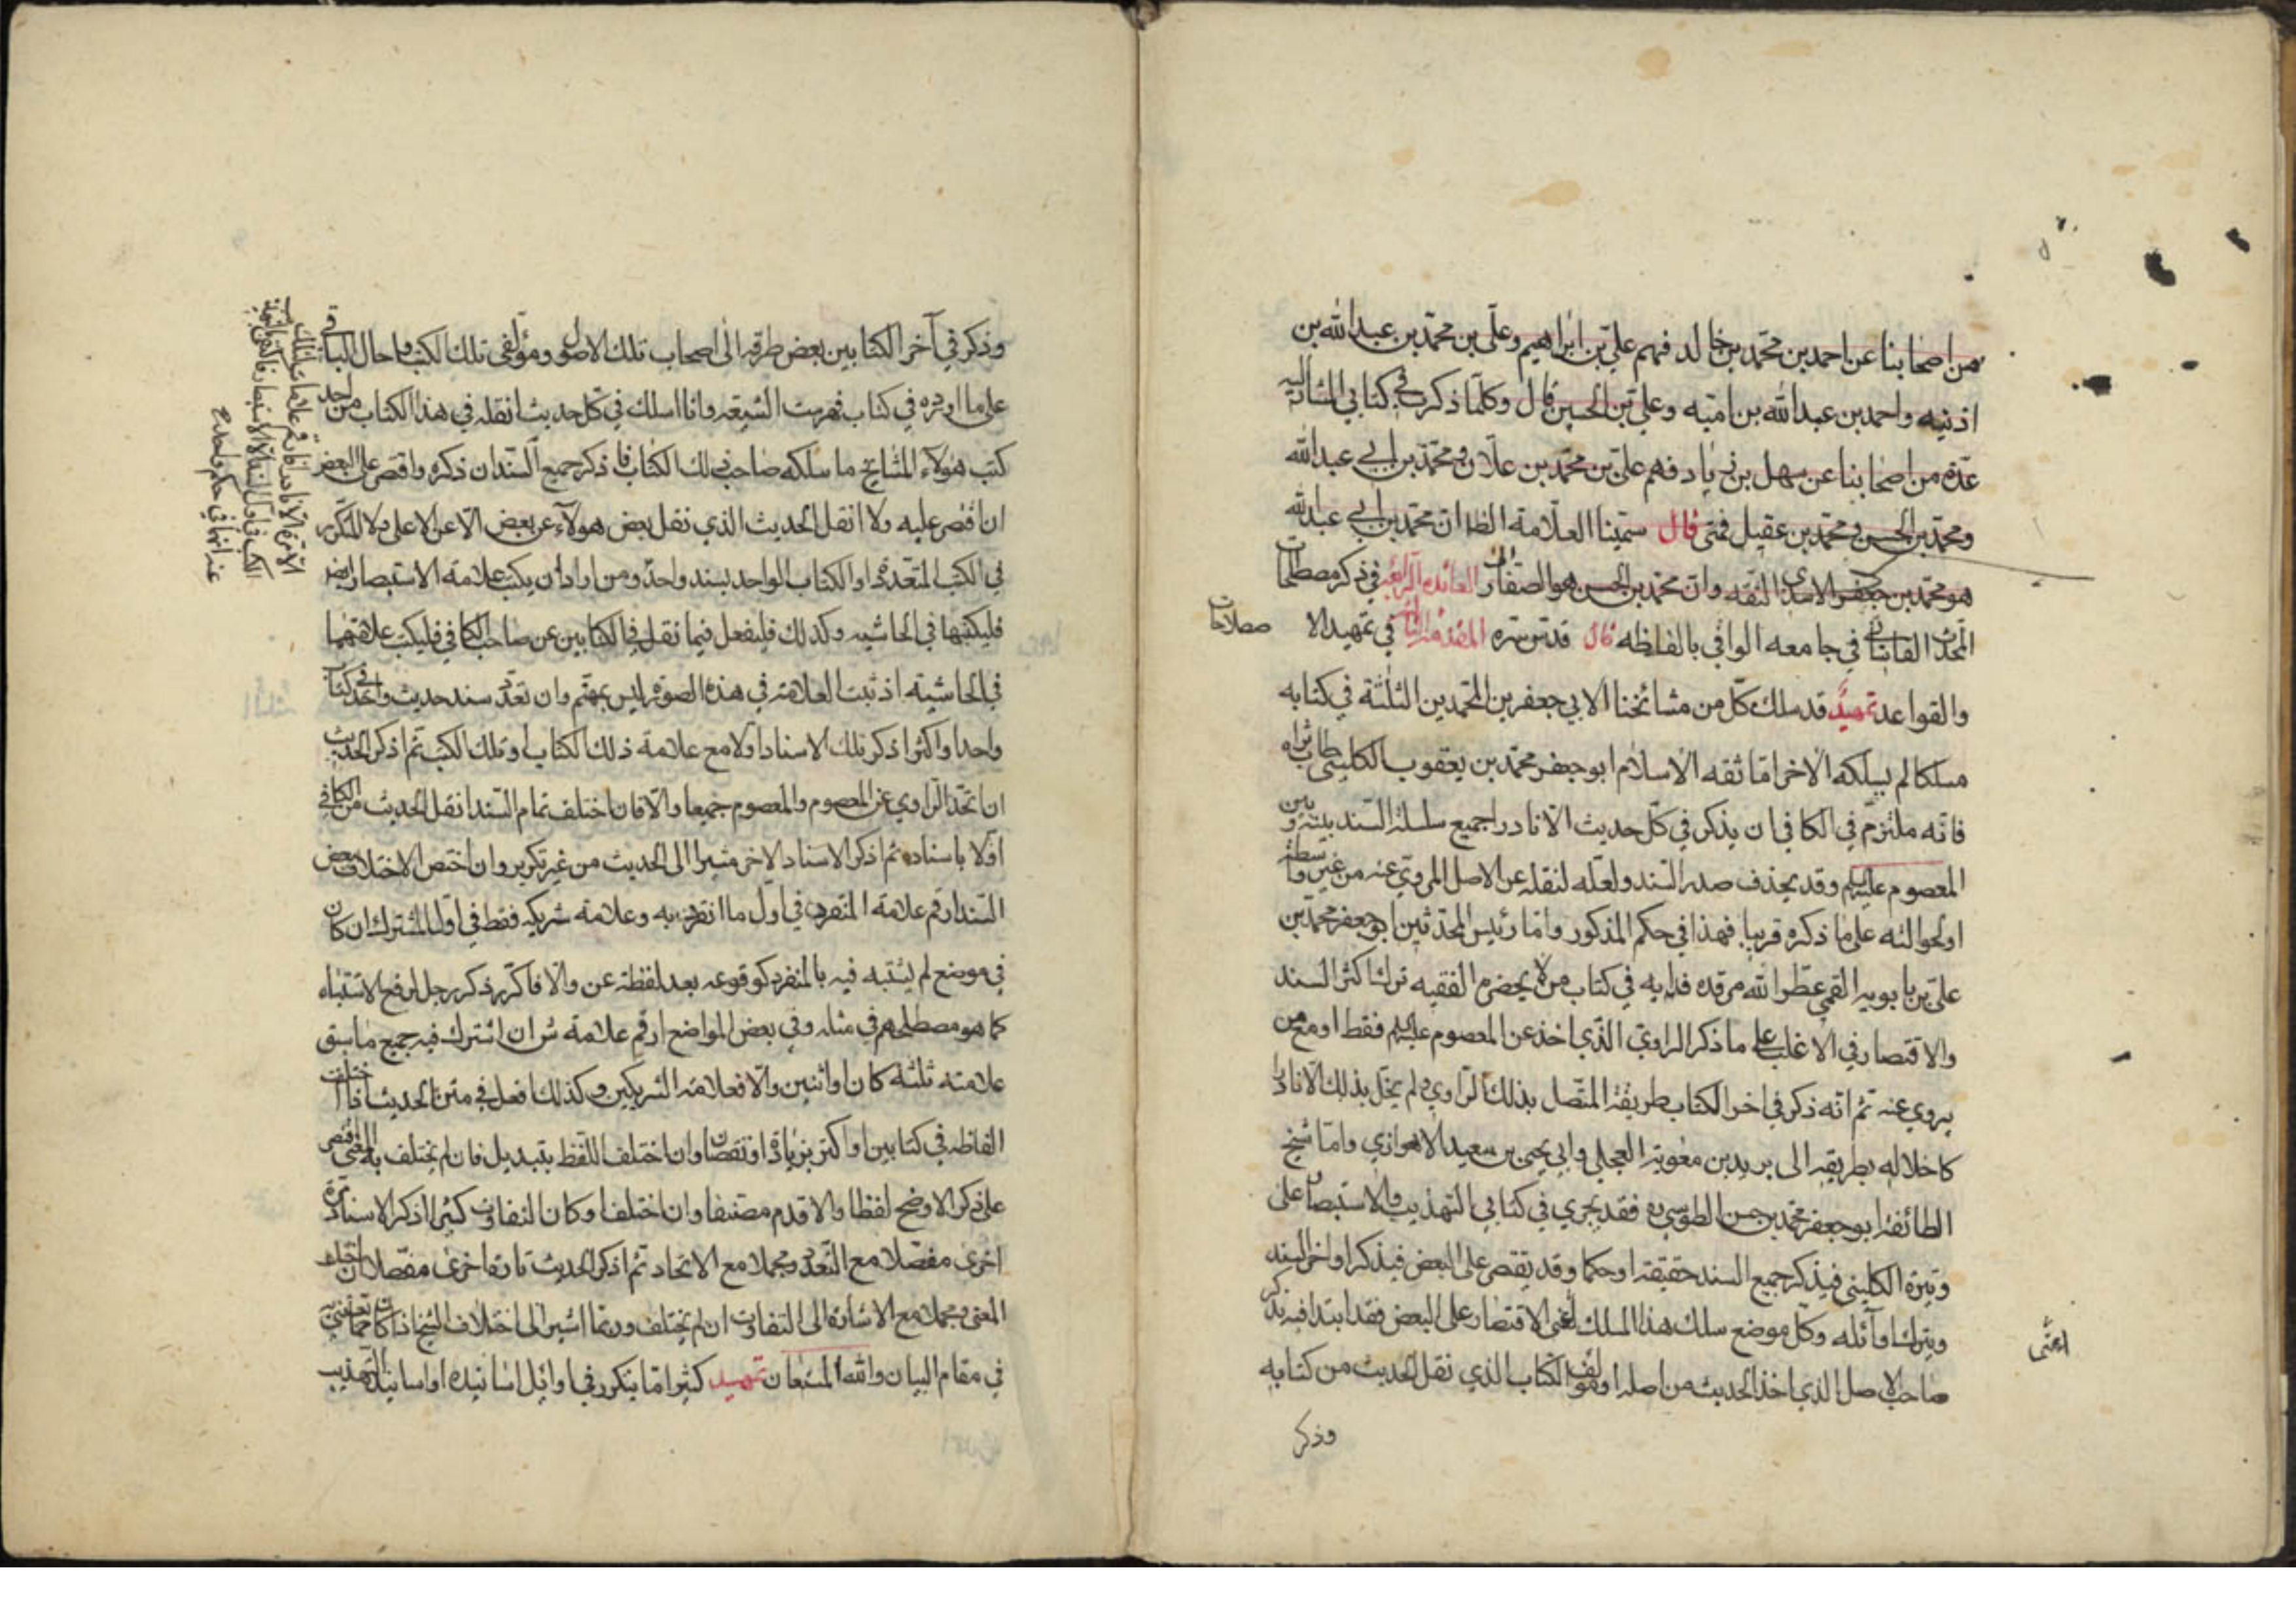 من اصحابنا عن احمد بن محمّد بن خالد فهم عليّ بن ابراهيم وعلي بن محمّد بن عبد الله بن
اذنيه واحمد بن عبد الله بن اميّه وعليّ بن الحسين قال وكلّما ذكر في كتابي المشار اليه
عدّة من اصحابنا عن سهل بن زياد فهم عليّ بن محمّد بن علان ومحمّد بن ابي عبد الله
ومحمّد بن الحسن ومحمّد بن عقيل فمتى قال ستمينا العلّامة الظان محمّد بن ابي عبد الله
هو محمّد بن جعفر الاسدي الثقه وان محمّد بن الحسن هو الصفّار الفائده الرابعه في ذكر مصطلحات
المحدّث القاساني في جامعه الوافي بالفاظه قال قدّس سرّه المقدّمة الثانية في تمهيد الا
صطلاحات
والقواعد تمهيد قد سلك كلّ من مشائخنا الابي جعفرين المحمّدين الثلثة في كتابه
مسلكا لم يسلكه الاخر امّا ثقه الاسلام ابو جعفر محمّد بن يعقوب الكليني طاب ثراه
فانّه ملتزم في الكافي ان يذكر في كلّ حديث الّا نادرا جميع سلسلة السند بينه وبين
المعصوم عليه السلم وقد يحذف صدر السند ولعلّه لنقله عن الاصل المروي عنه من غير واسطة
او لحوالته على ما ذكره قريبا فهذا في حكم المذكور وامّا رئيس المحدّثين ابو جعفر محمّد بن
عليّ بن بابويه القمي عطّر الله مرقده فدابه في كتاب من لا يحضره الفقيه ترك اكثر السند
والاقتصار في الاغلب على ما ذكر الراوي الّذي اخذ عن المعصوم عليه السلم فقط او مع من
يروي عنه ثم انّه ذكر في اخر الكتاب طريقه المتّصل بذلك الراوي ولم يخلّ بذلك الّا نادرا
كاخلاله بطريقه الى بريد بن معوية العجلي وابي يحيى بن سعيد الاهوازي وامّا شيخ
الطائفة ابو جعفر محمّد بن حسن الطوسي ره فقد يجري في كتابي التهذيب والاستبصار على
وتيرة الكليني فيذكر جميع السند حقيقة او حكما وقد يقتصر على البعض فيذكر اواخر السند
ويترك اوآئله وكلّ موضع سلك هذا المسلك اعنى الاقتصار على البعض فقد ابتدا فيه بذكر
اعنى
صاحب الاصل الذي اخذ الحديث من اصله او مؤلّف الكتاب الذي نقل الحديث من كتابه
وذكر
وذكر في آخر الكتابين بعض طرقه الى اصحاب تلك الاصول ومؤلّفي تلك الكتب واحال الباقي
على ما اورده في كتاب فهرست الشيعة وانا اسلك في كل حديث انقله في هذا الكتاب من احد
كتب هؤلاء المشايخ ما سلكه صاحب ذلك الكتاب فاذكر جميع السند ان ذكره واقتصر على البعض
ان اقتصر عليه ولا انقل الحديث الذي نقل بعض هولآء عن بعض الّا عن الاعلى ولا المكرّر
في الكتب المتعدّدة او الكتاب الواحد بسند واحد ومن اراد ان يكتب علامة الاستبصار ايضا
فليكتبها في الحاشيه وكذلك فليفعل فيما نقل في الكتابين عن صاحب الكافي فليكتب علامتهما
في الحاشيته اذ ثبت العلامة في هذه الصورة ليس بمهمّ وان تعدّد سند حديث واحد في كتاب
واحد او اكثر اذكر تلك الاسناد اولا مع علامة ذلك الكتاب او تلك الكتب ثم اذكر الحديث
ان اتّحد الراوي عن المعصوم والمعصوم جميعا والّا فان اختلف تمام السند انقل الحديث من الكافي
اولا باسناده ثم اذكر الاسناد الاخر مشيرا الى الحديث من غير تكرير وان اختص الاختلاف ببعض
السند ارقم علامة المتفرد في اول ما انفرد به وعلامة شريكه فقط في اول المشترك ان كان
في موضع لم يشتبه فيه بالمنفرد كوقوعه بعد لفظة عن والّا فاكرّر ذكر رجل لرفع الاشتباه
كما هو مصطلحهم في مثله وفي بعض المواضع ارقم علامة ش ان اشترك فيه جميع ما سبق
علامته ثلثه كان او اثنين والّا فعلامة الشريكين وكذلك افعل في متن الحديث اذا اختلف
الفاظه في كتابين او اكثر بزيادة او نقصان وان اختلف اللفظ بتبديل فان لم يختلف به المعنى اقتصر
على ذكر الاوضح لفظا والاقدم مصنّفا وان اختلفا وكان التفاوت كثيرا اذكر الاسناد تارة
اخرى مفصّلا مع التعدّد ومجملا مع الاتحاد ثم اذكر الحديث تارة اخرى مفصّلا ان اختلف
المعنى ومجملا مع الاشارة الى التفاوت ان لم يختلف وربّما اشير الى اختلاف النسخ اذا كان ممّا يعتنى به
في مقام البيان والله المستعان تمهيد كثيرا ما يتكرر في اوائل اسانيده او اسانيد التهذيب